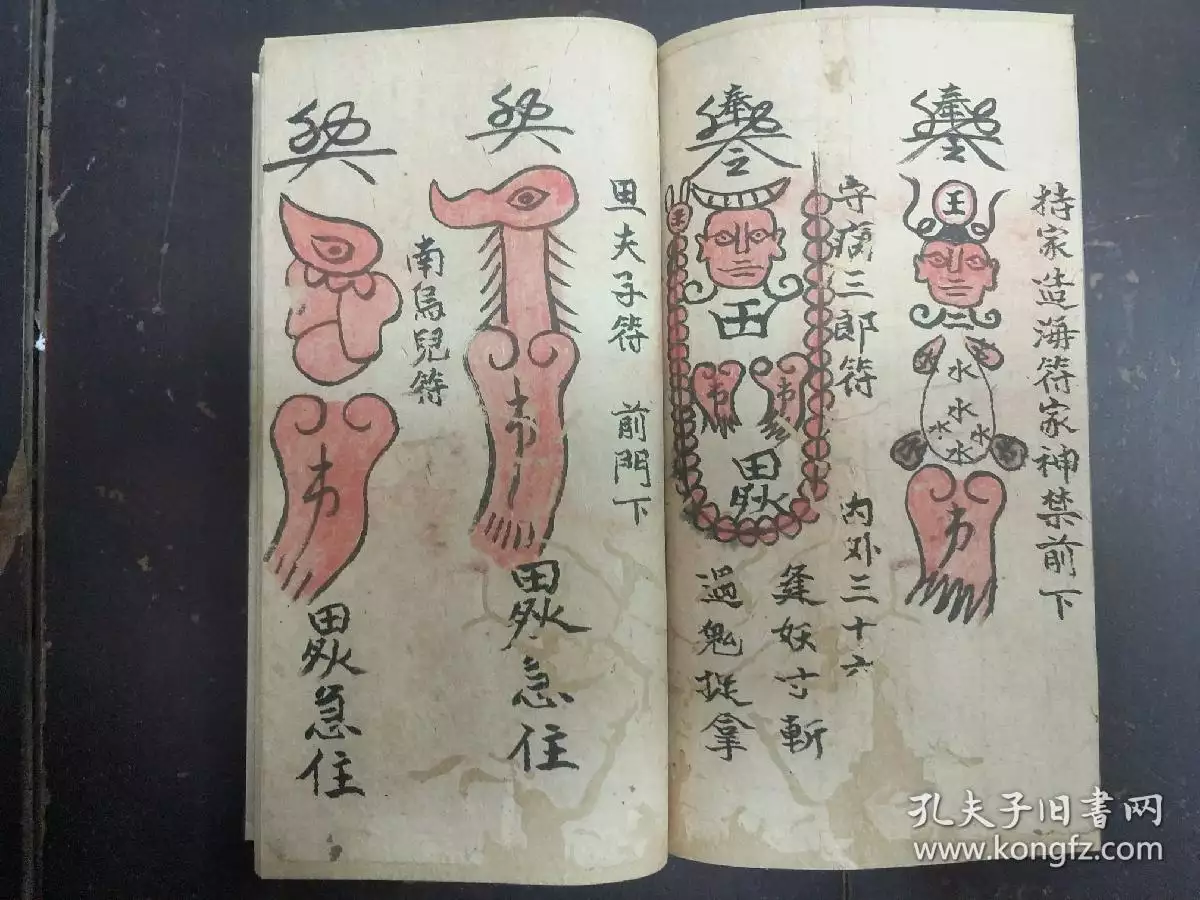 奉
王
水
水
水
水
水
持家造海符家神禁前下
奉
守病三郎符 内外三十六
田
逢妖寸斬
過鬼捉拿
田夫子符 前門下
田
急住
南鳥兒符
田
急住
孔夫子旧书网
www.kongfz.com